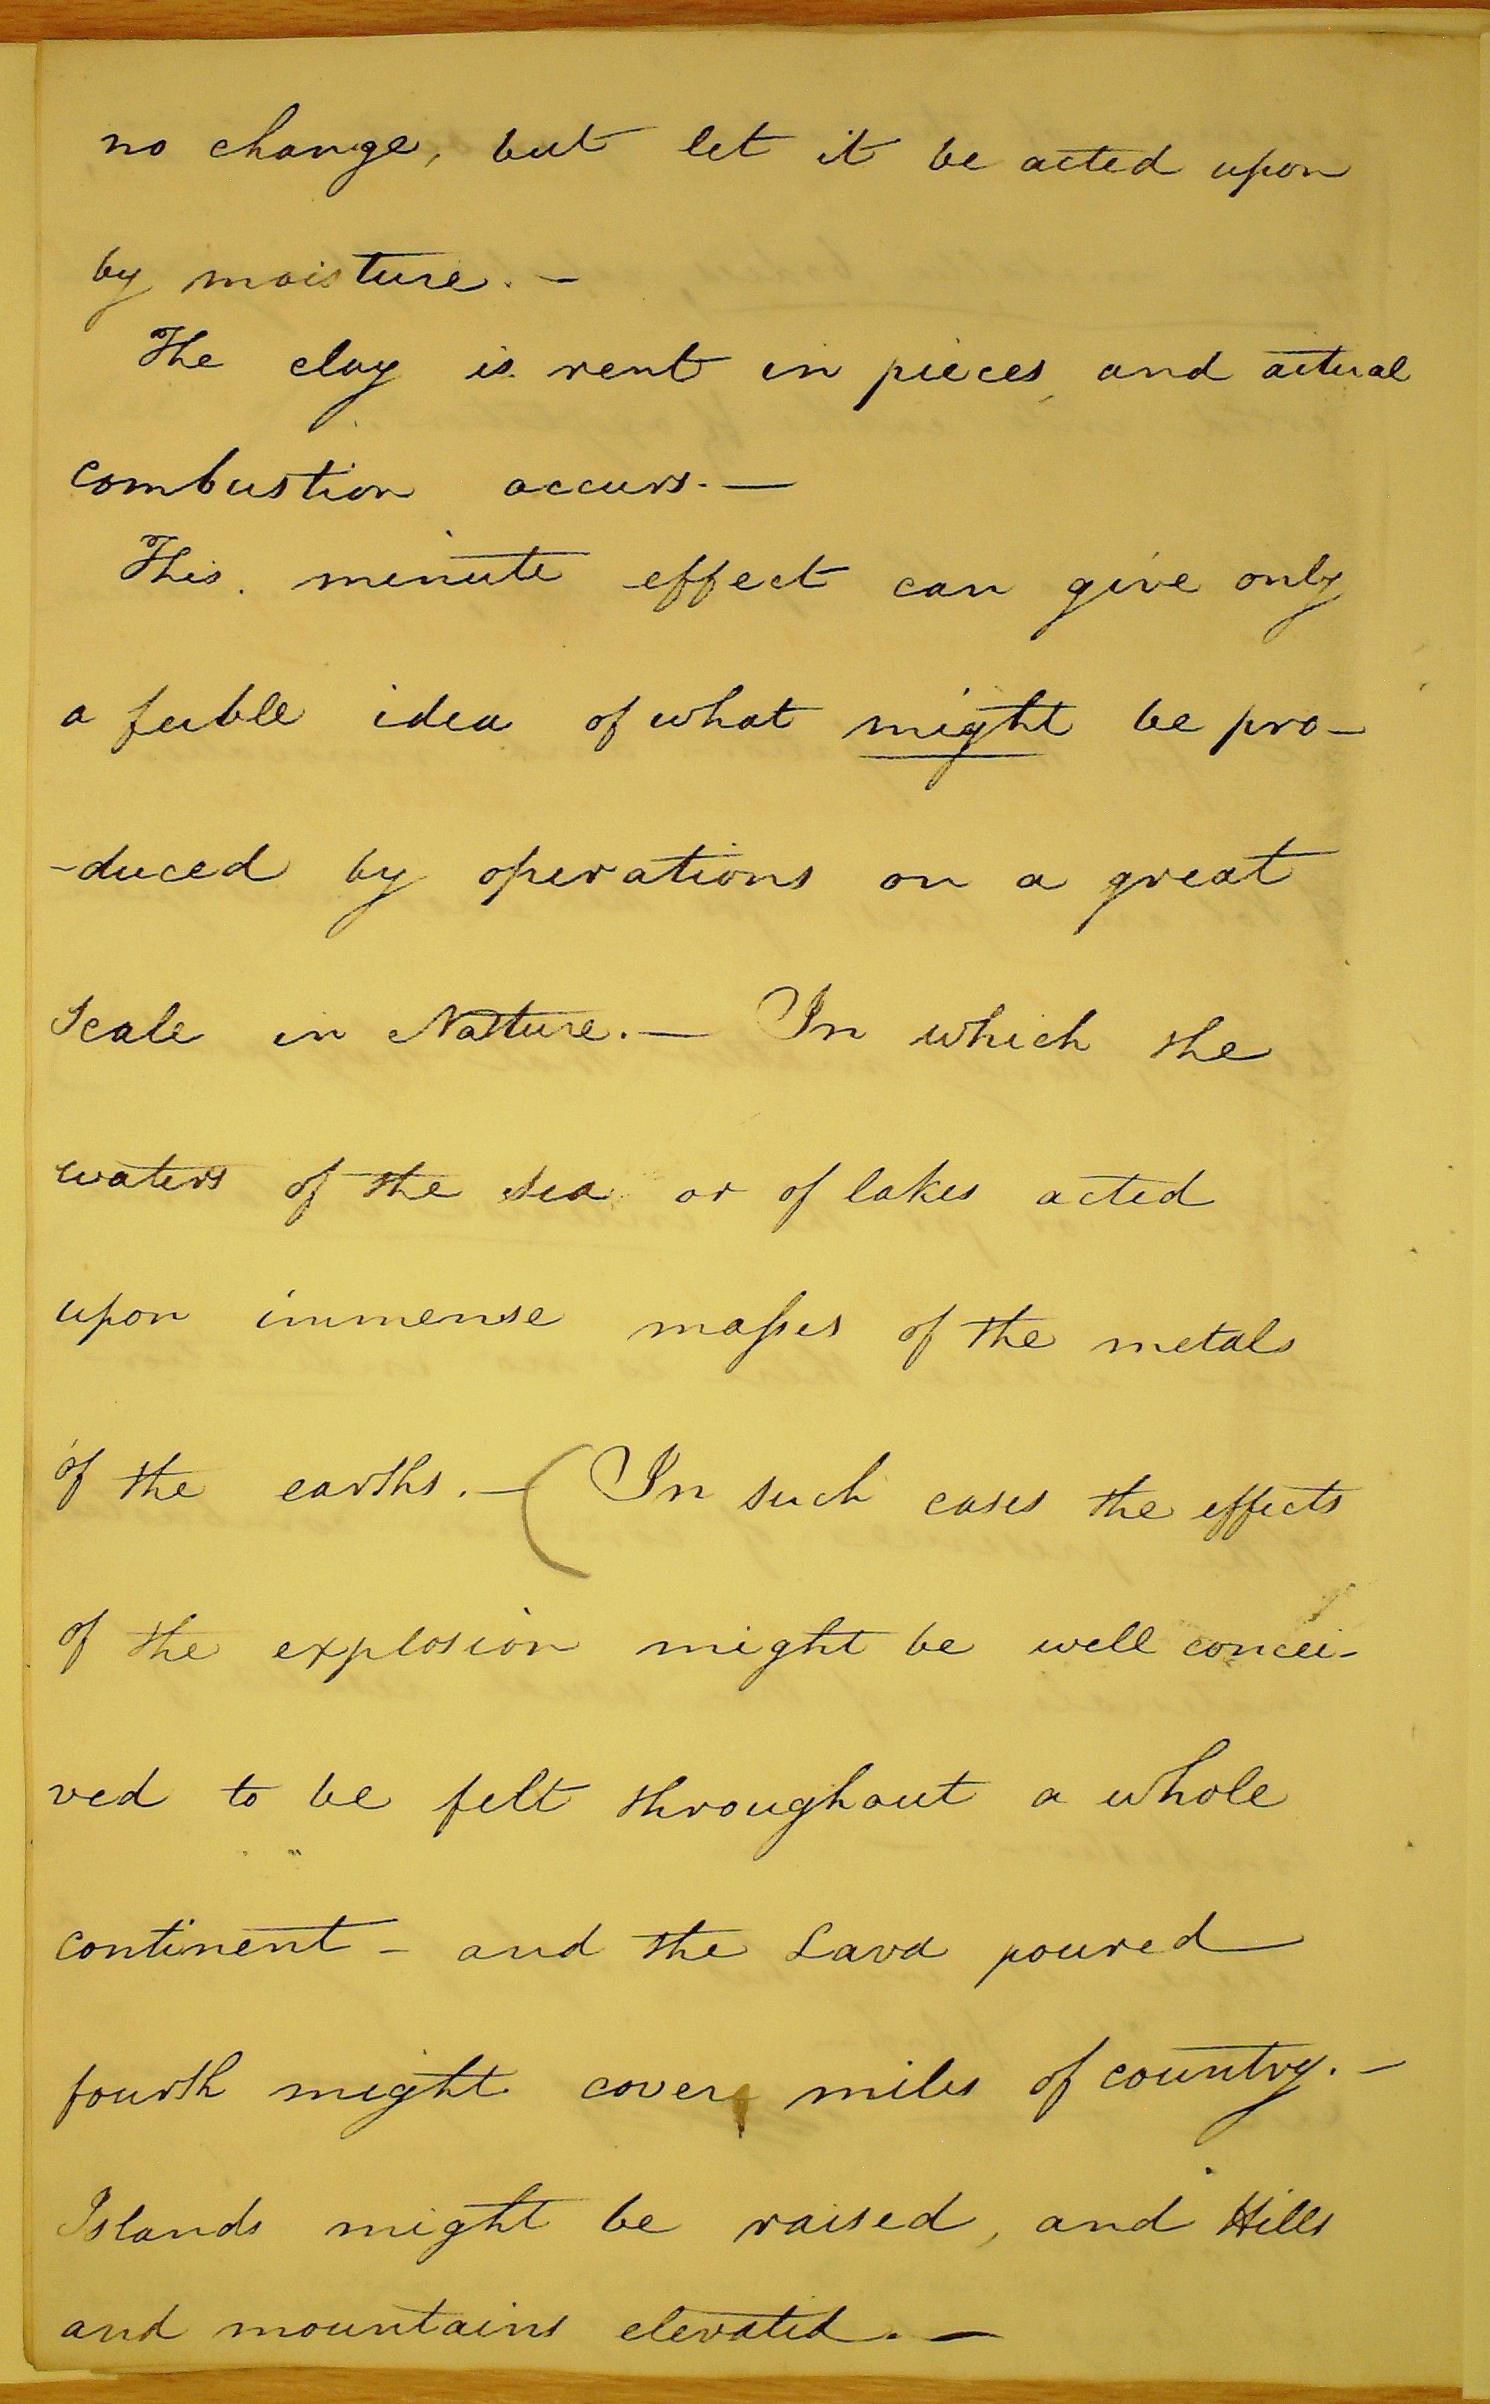 no change, but let it be acted upon
by moisture. —
The clay is rent in pieces, and actual
combustion occurs. —
This minute effect can give only
a feeble idea of what might be pro-
-duced by operations on a great
Scale in Nature. — In which the
waters of the sea or of lakes acted
upon immense maſses of the metals
of the earths. — ( In such cases the effects
of the explosion might be well concei-
ved to be felt throughout a whole
continent - and the Lava poured
fourth might cover miles of country. —
Islands might be raised, and Hills
and mountains elevated. —